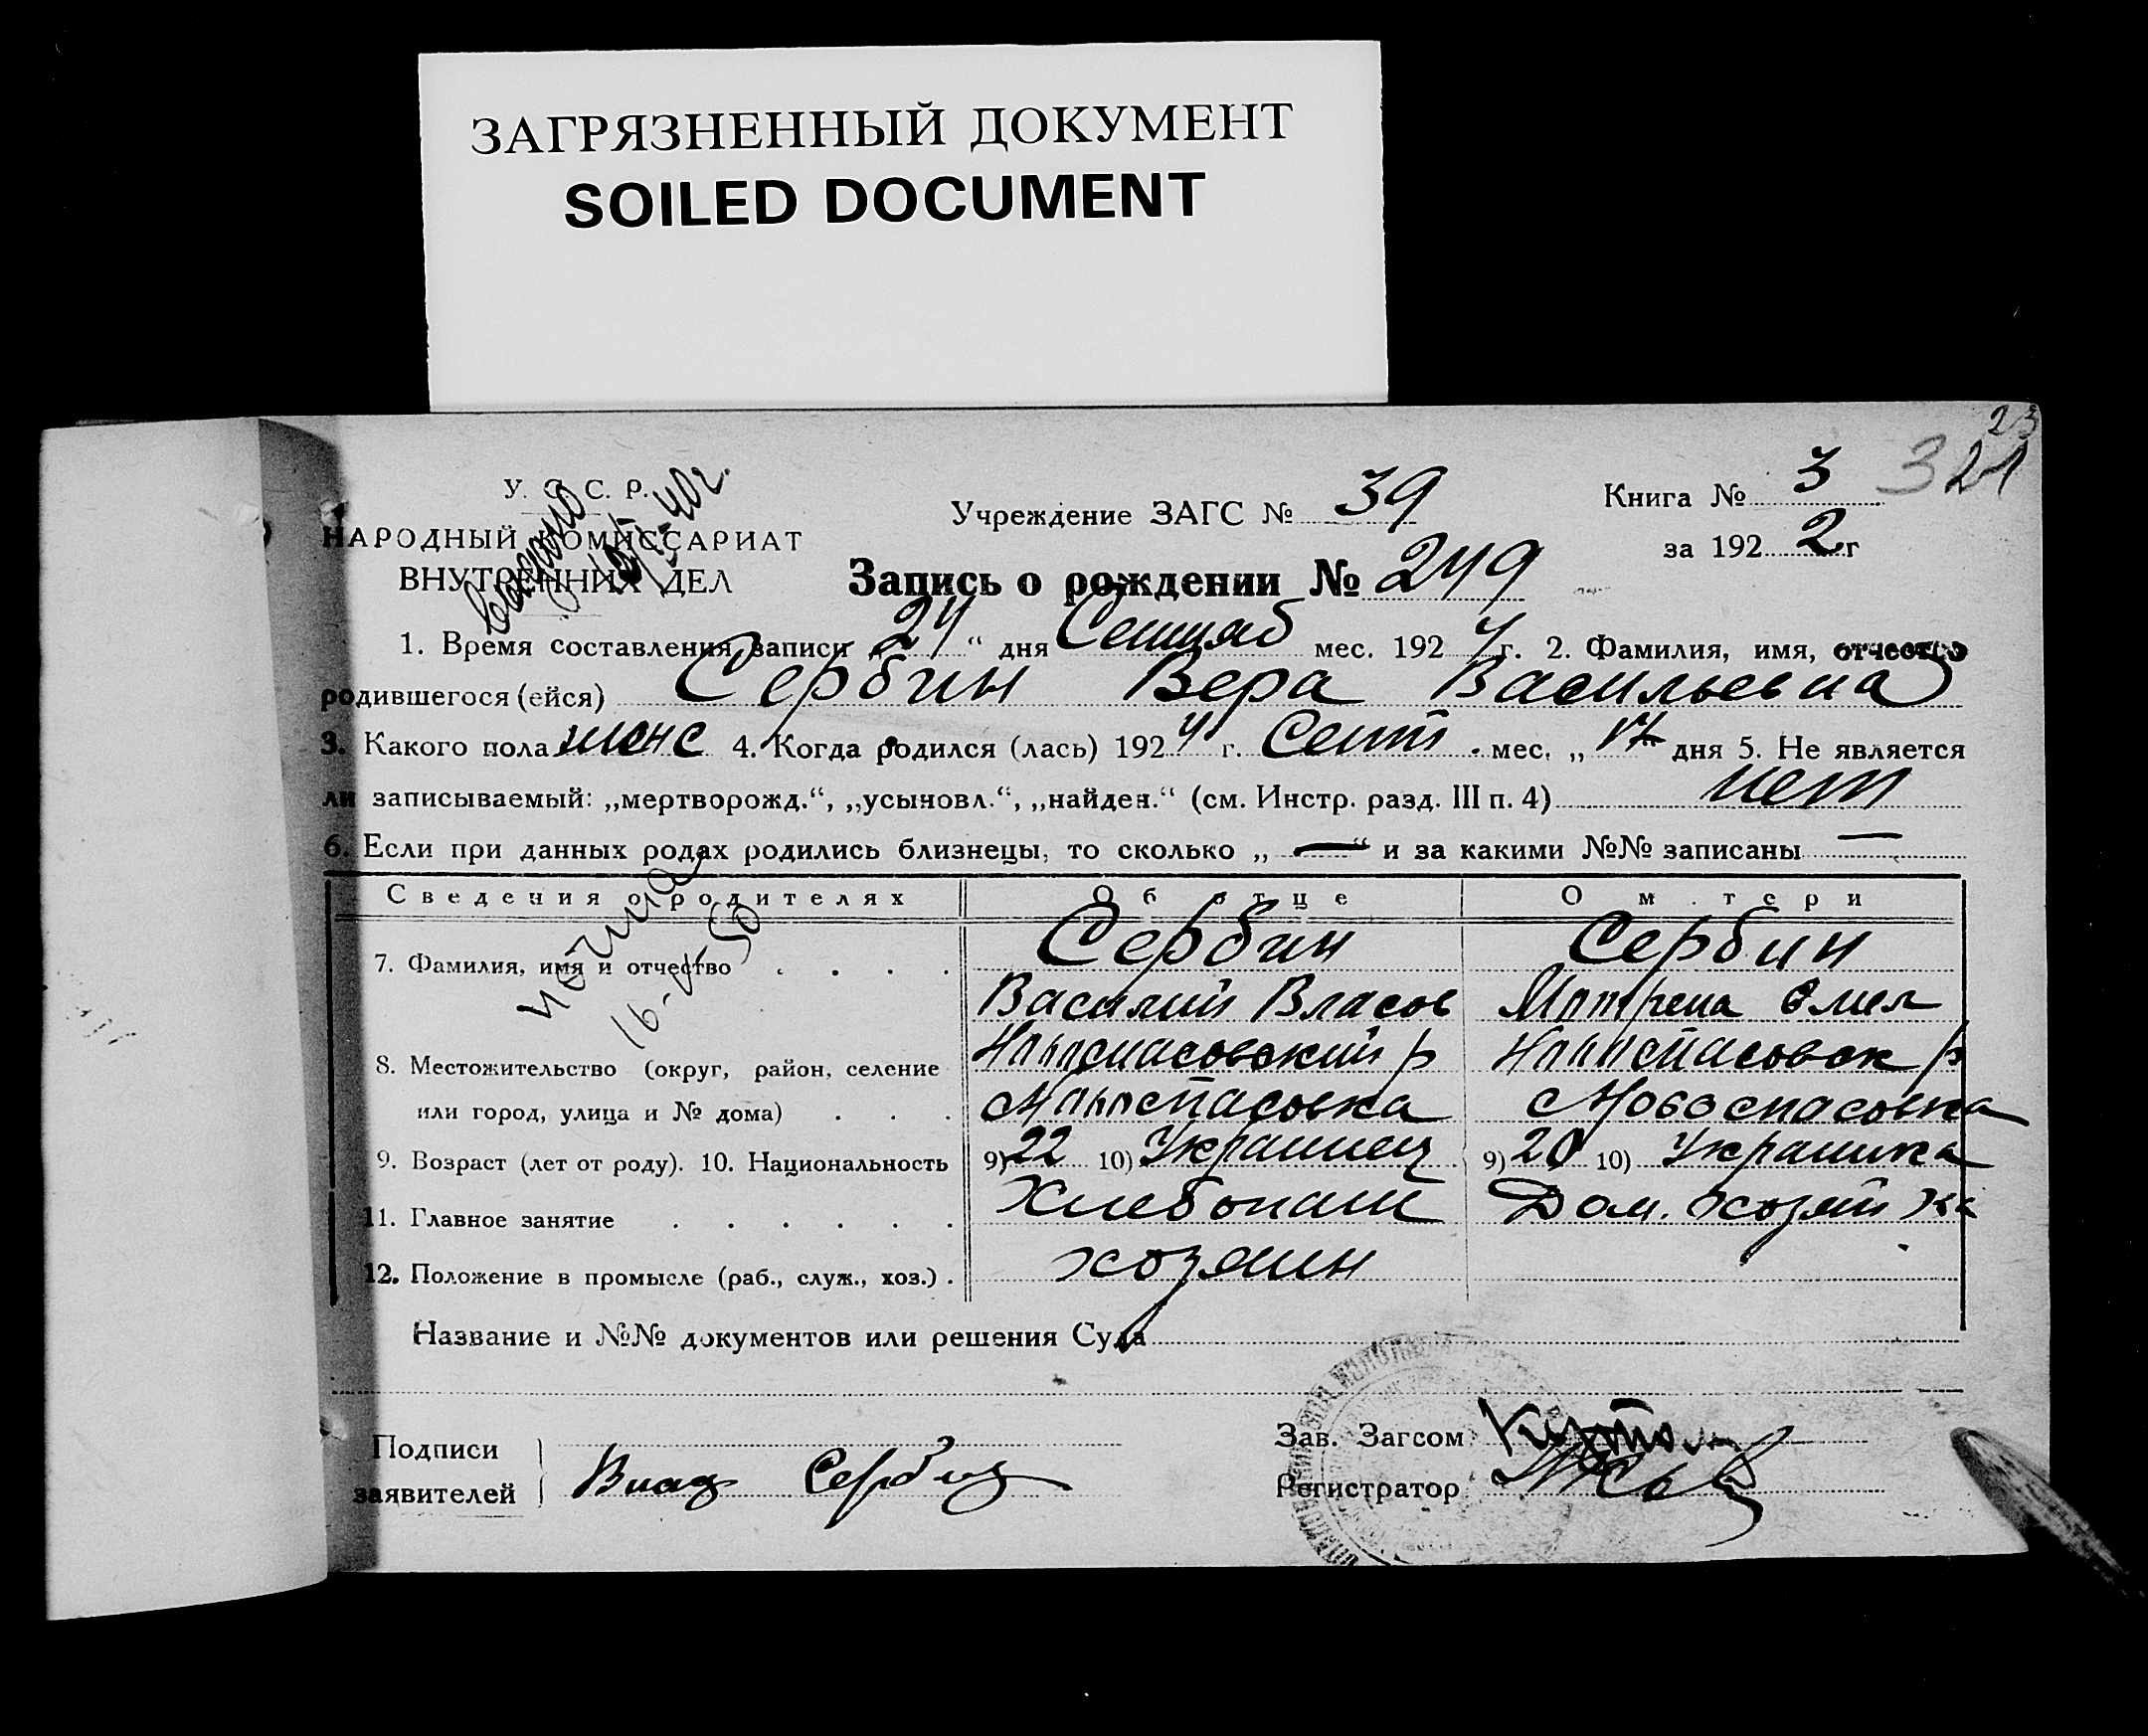 ЗАГРЯЗНЕННЫЙ ДОКУМЕНТ
SOILED DOCUMENT
23
321
У. С. С. Р.
НАРОДНЫЙ КОМИССАРИАТ
ВНУТРЕННИХ ДЕЛ
Выдано
Учреждение ЗАГС № 39
Книга № 3
за 1922 г
Запись о рождении № 249
1. Время составления записи „24“ дня Сентяб мес. 1924 г. 2. Фамилия, имя, отчество
родившегося (ейся) Сербин Вера Васильевна
3. Какого пола женс 4. Когда родился (лась) 1924 г. Сент. мес. „17“ дня 5. Не является
ли записываемый: „мертворожд.“, „усыновл.“, „найден.“ (см. Инстр. разд. III п. 4) нет
6. Если при данных родах родились близнецы, то сколько „—“ и за какими №№ записаны —
Сведения о родителях Об отце О м.тери
7. Фамилия, имя и отчество Сербин Сербин
Василий Власов Мотрена Омел
8. Местожительство (округ, район, селение Новоспасовский р Новоспасовск р
или город, улица и № дома) с Новоспасовка с Новоспасовка
9. Возраст (лет от роду). 10. Национальность 9) 22 10) Украинец 9) 20 10) Украинка
11. Главное занятие Хлебопаш Дом. хозяйка
12. Положение в промысле (раб., служ., хоз.) хозяин
16-VI-50
Название и №№ документов или решения Суда
Подписи
заявителей Влад Сербин
Зав. Загсом
Регистратор